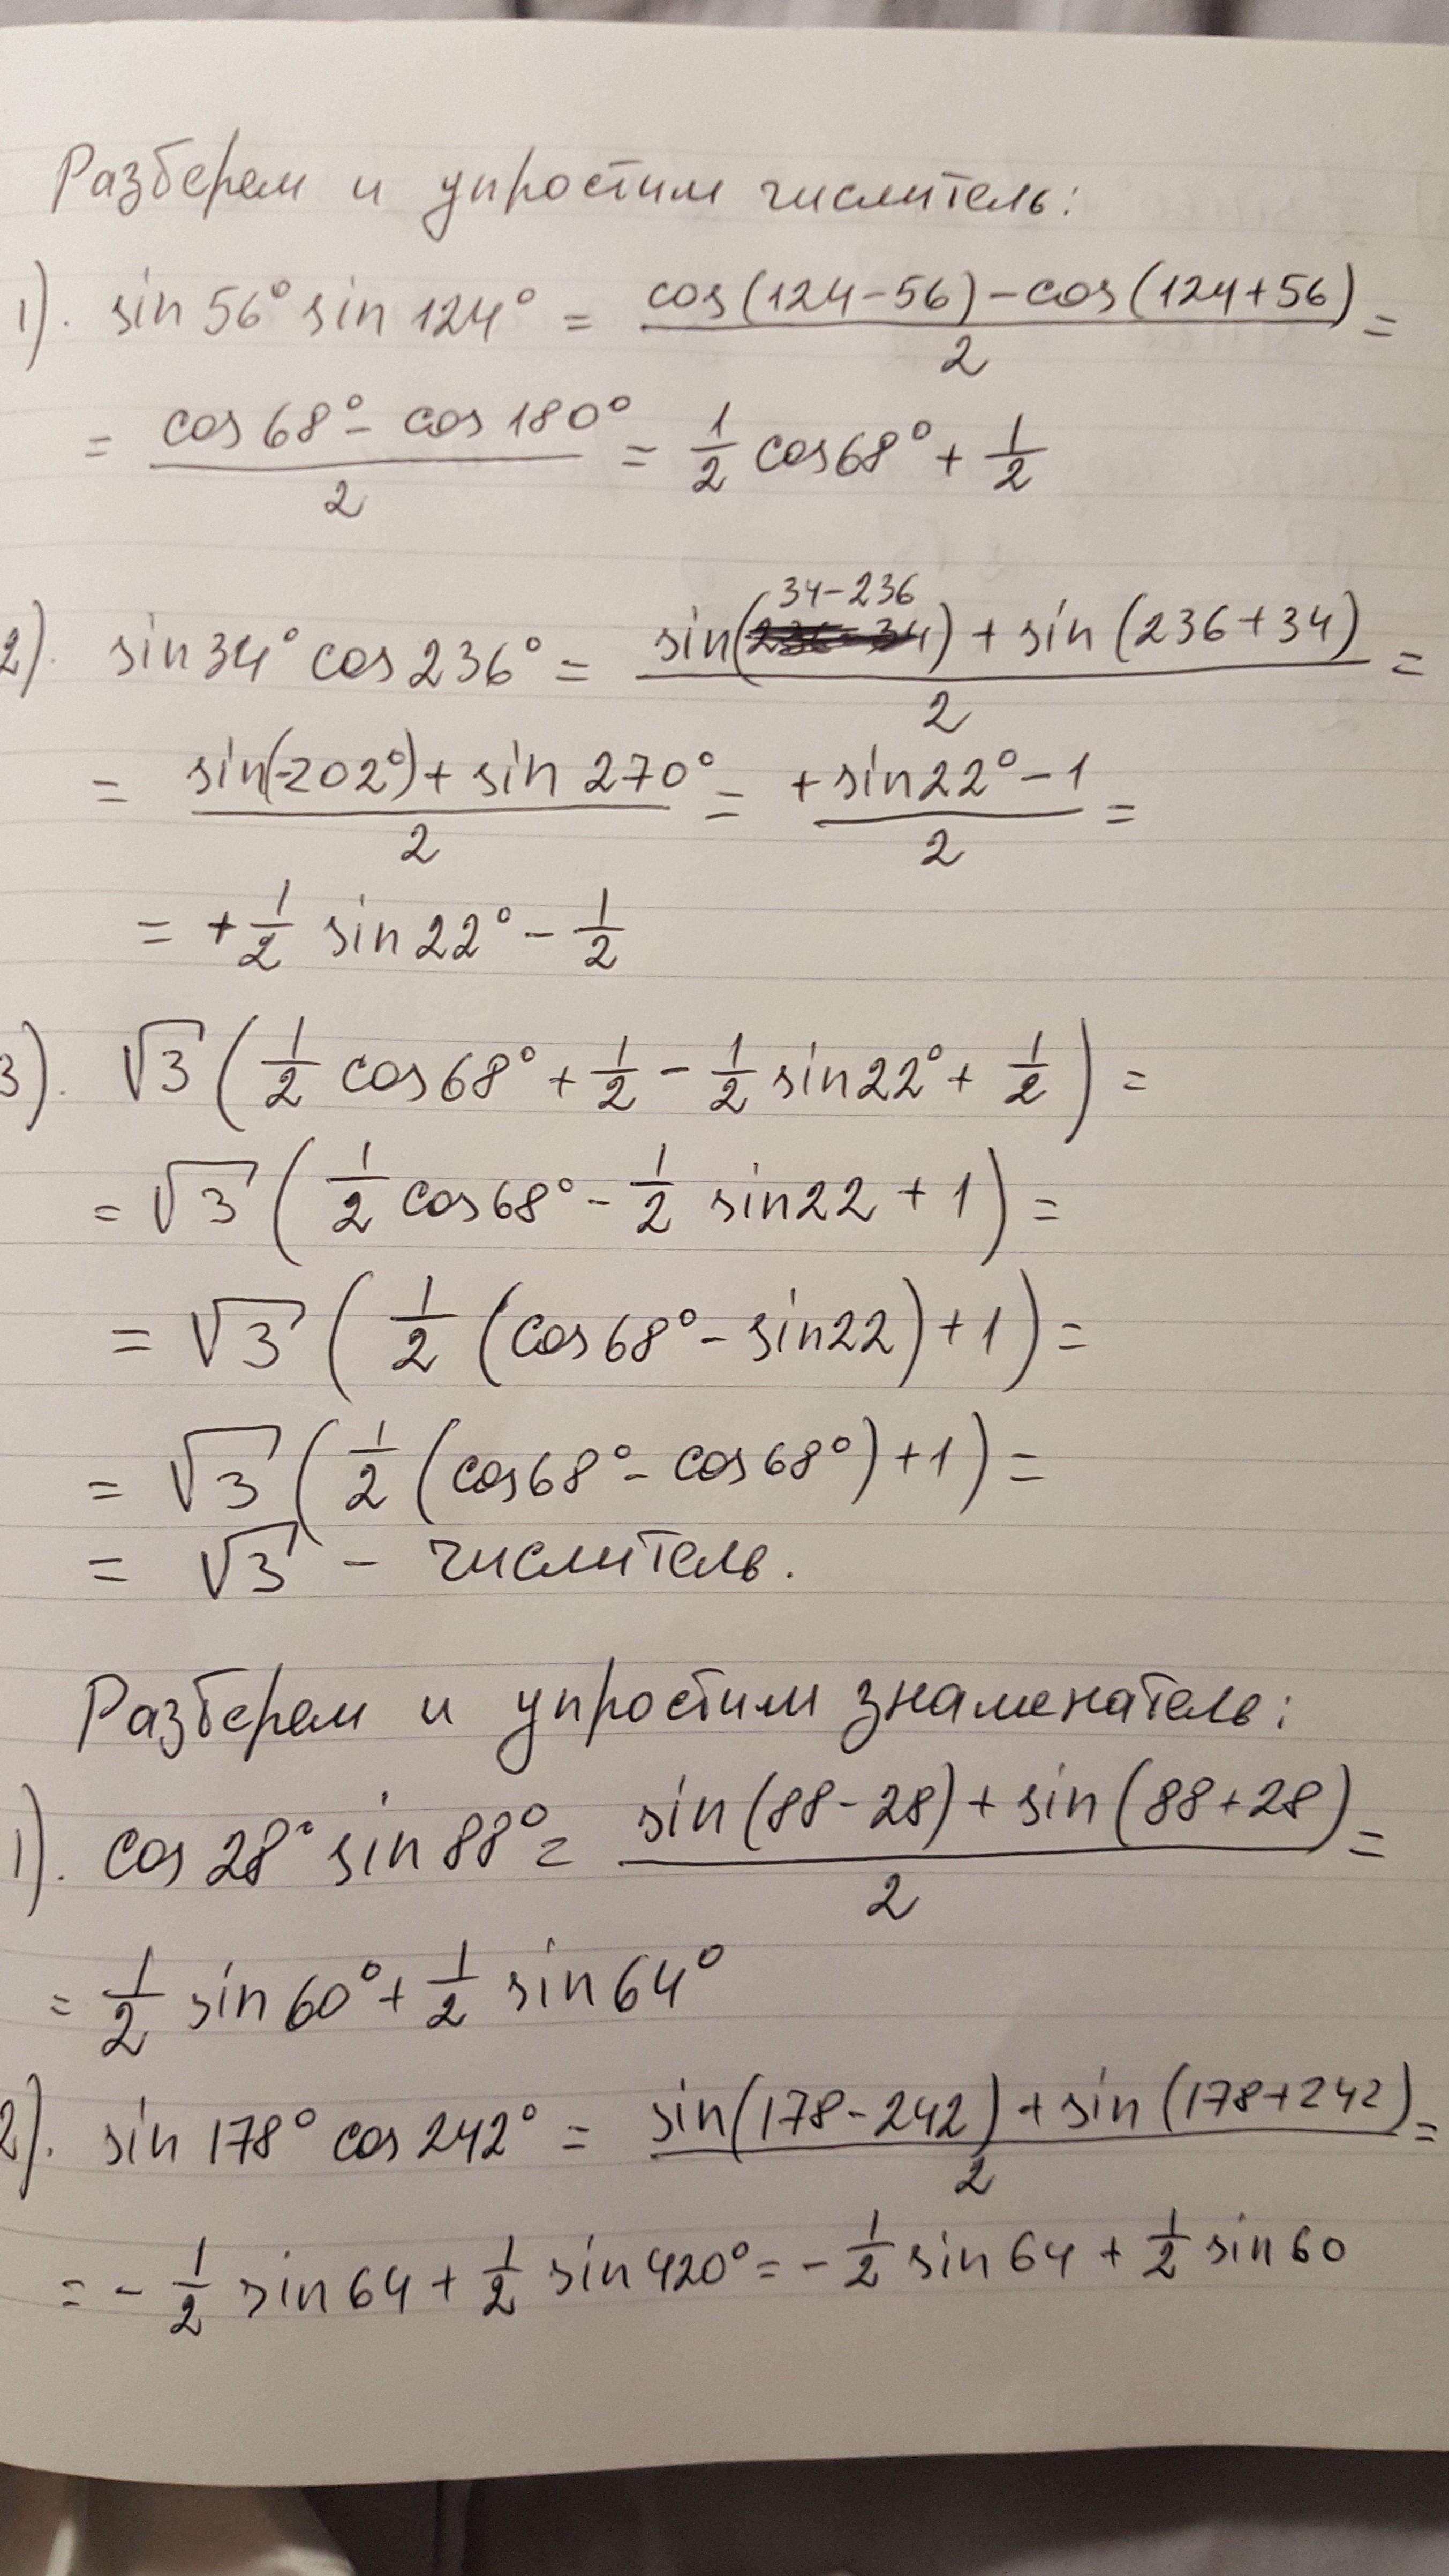 Разберем и упростим числитель:
1). sin 56° sin 124° = (cos(124-56) - cos(124+56))/2 =
= (cos 68° - cos 180°)/2 = 1/2 cos 68° + 1/2
2). sin 34° cos 236° = (sin(34-236) + sin(236+34))/2 =
= (sin(-202°) + sin 270°)/2 = (+sin 22° - 1)/2 =
= +1/2 sin 22° - 1/2
3). √3 (1/2 cos 68° + 1/2 - 1/2 sin 22° + 1/2) =
= √3 (1/2 cos 68° - 1/2 sin 22 + 1) =
= √3 (1/2 (cos 68° - sin 22) + 1) =
= √3 (1/2 (cos 68° - cos 68°) + 1) =
= √3 - числитель.
Разберем и упростим знаменатель:
1). cos 28° sin 88° = (sin(88-28) + sin(88+28))/2 =
= 1/2 sin 60° + 1/2 sin 64°
2). sin 178° cos 242° = (sin(178-242) + sin(178+242))/2 =
= -1/2 sin 64 + 1/2 sin 420° = -1/2 sin 64 + 1/2 sin 60